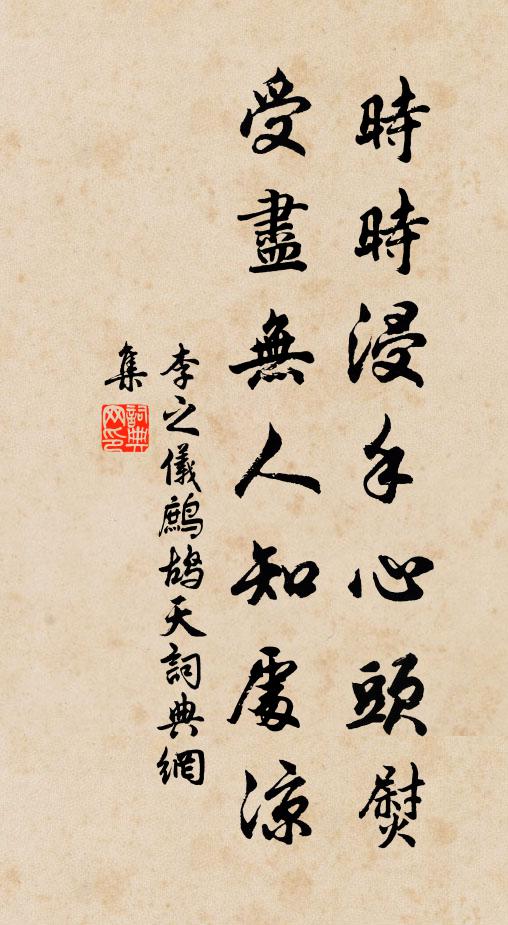 時時浸手心頭熨
受盡無人知處涼
李之儀鷓鴣天詞典網
集
詞典网印